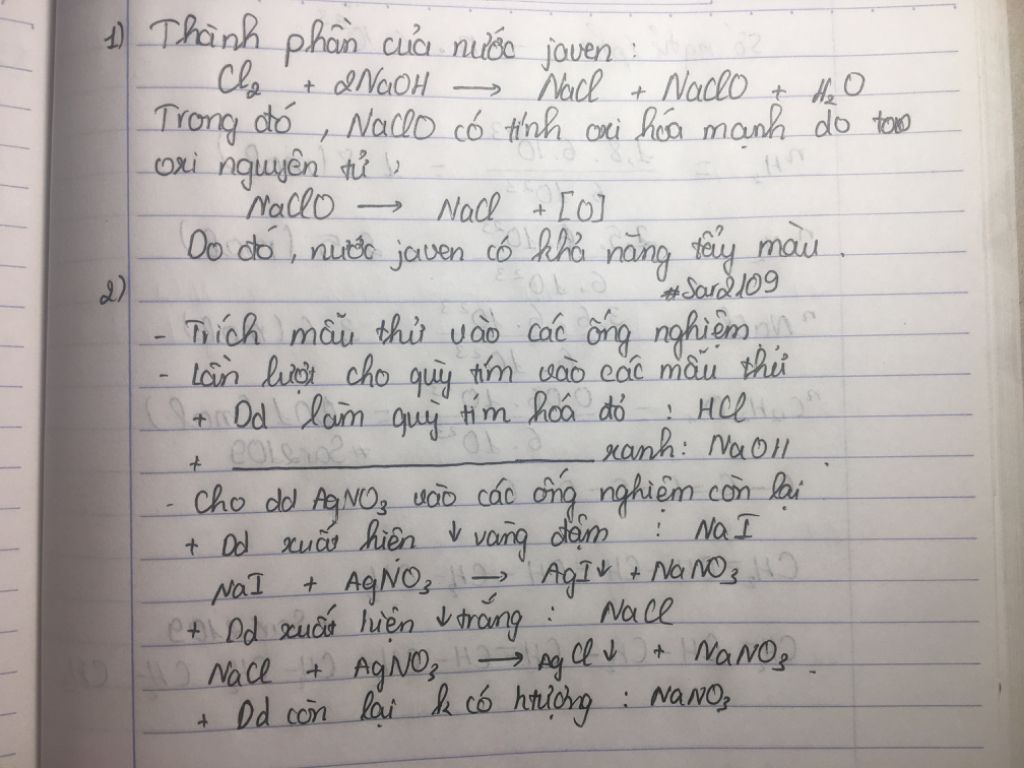 1) Thành phần của nước javen :
Cl₂ + 2NaOH → NaCl + NaClO + H₂O
Trong đó , NaClO có tính oxi hóa mạnh do tạo
oxi nguyên tử ,
NaClO → NaCl + [O]
Do đó , nước javen có khả năng tẩy màu .
#Sar2109
2)
- Trích mẫu thử vào các ống nghiệm
- Lần lượt cho quỳ tím vào các mẫu thử
+ Dd làm quỳ tím hoá đỏ : HCl
+ ____________________ xanh : NaOH .
- Cho dd AgNO₃ vào các ống nghiệm còn lại
+ Dd xuất hiện ↓ vàng đậm : NaI
NaI + AgNO₃ → AgI↓ + NaNO₃
+ Dd xuất hiện ↓ trắng : NaCl
NaCl + AgNO₃ → AgCl↓ + NaNO₃ .
+ Dd còn lại k có htượng : NaNO₃